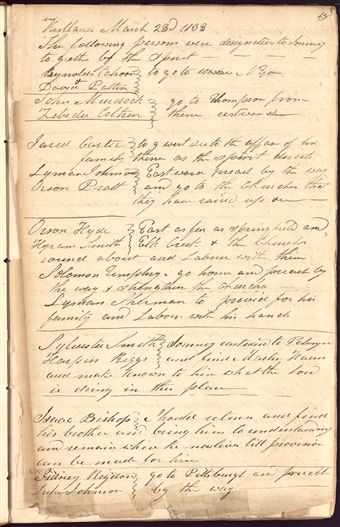 Kirtland March 23d 1833
The following persons were designated to Journey
to geth by the Spirit
Reynolds Cahoon } to go to
David Patten
John Murdock } go to Thompson from
Zebedee Coltrin } there eastward
Jared Carter } to go west the affair of his
family then as the Spirit directs
Lyman Johnson } Eastward preach by the way
Orson Pratt } and go to the Churches that
they have raised up
Orson Hyde } East as far as Springfield and
Hyrum Smith } Elk Creek & the Churches
round about and Labour with them
Solomon Humphry - go home and preach by
the way & Strengthen the Churches
Lyman Sherman to provide for his
family and Labour with his hands
Sylvester Smith } Journey eastward to
Harpin Riggs } and find Martin Harris
and make known to him what the Lord
is doing in this place
Isaac Bishop - Should return and find
his brother and bring him to understanding
and remain where he now lives till provision
can be made for him
Sidney Rigdon } go to Pittsburgh and preach
Luke Johnson } by the way